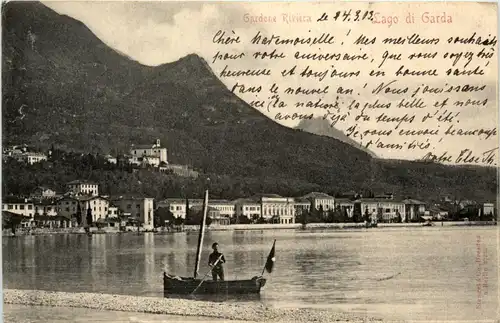 Gardone Riviera le 24.3.02 Lago di Garda
Chère Mademoiselle! Mes meilleurs souhaits
pour votre anniversaire, que vous soyez très
heureuse et toujours en bonne santé
dans le nouvel an! Nous jouissons
ici la nature, la plus belle et nous
avons déjà du temps d'été.
Je vous envoy beaucoup
d'amitiés.
votre Elseth